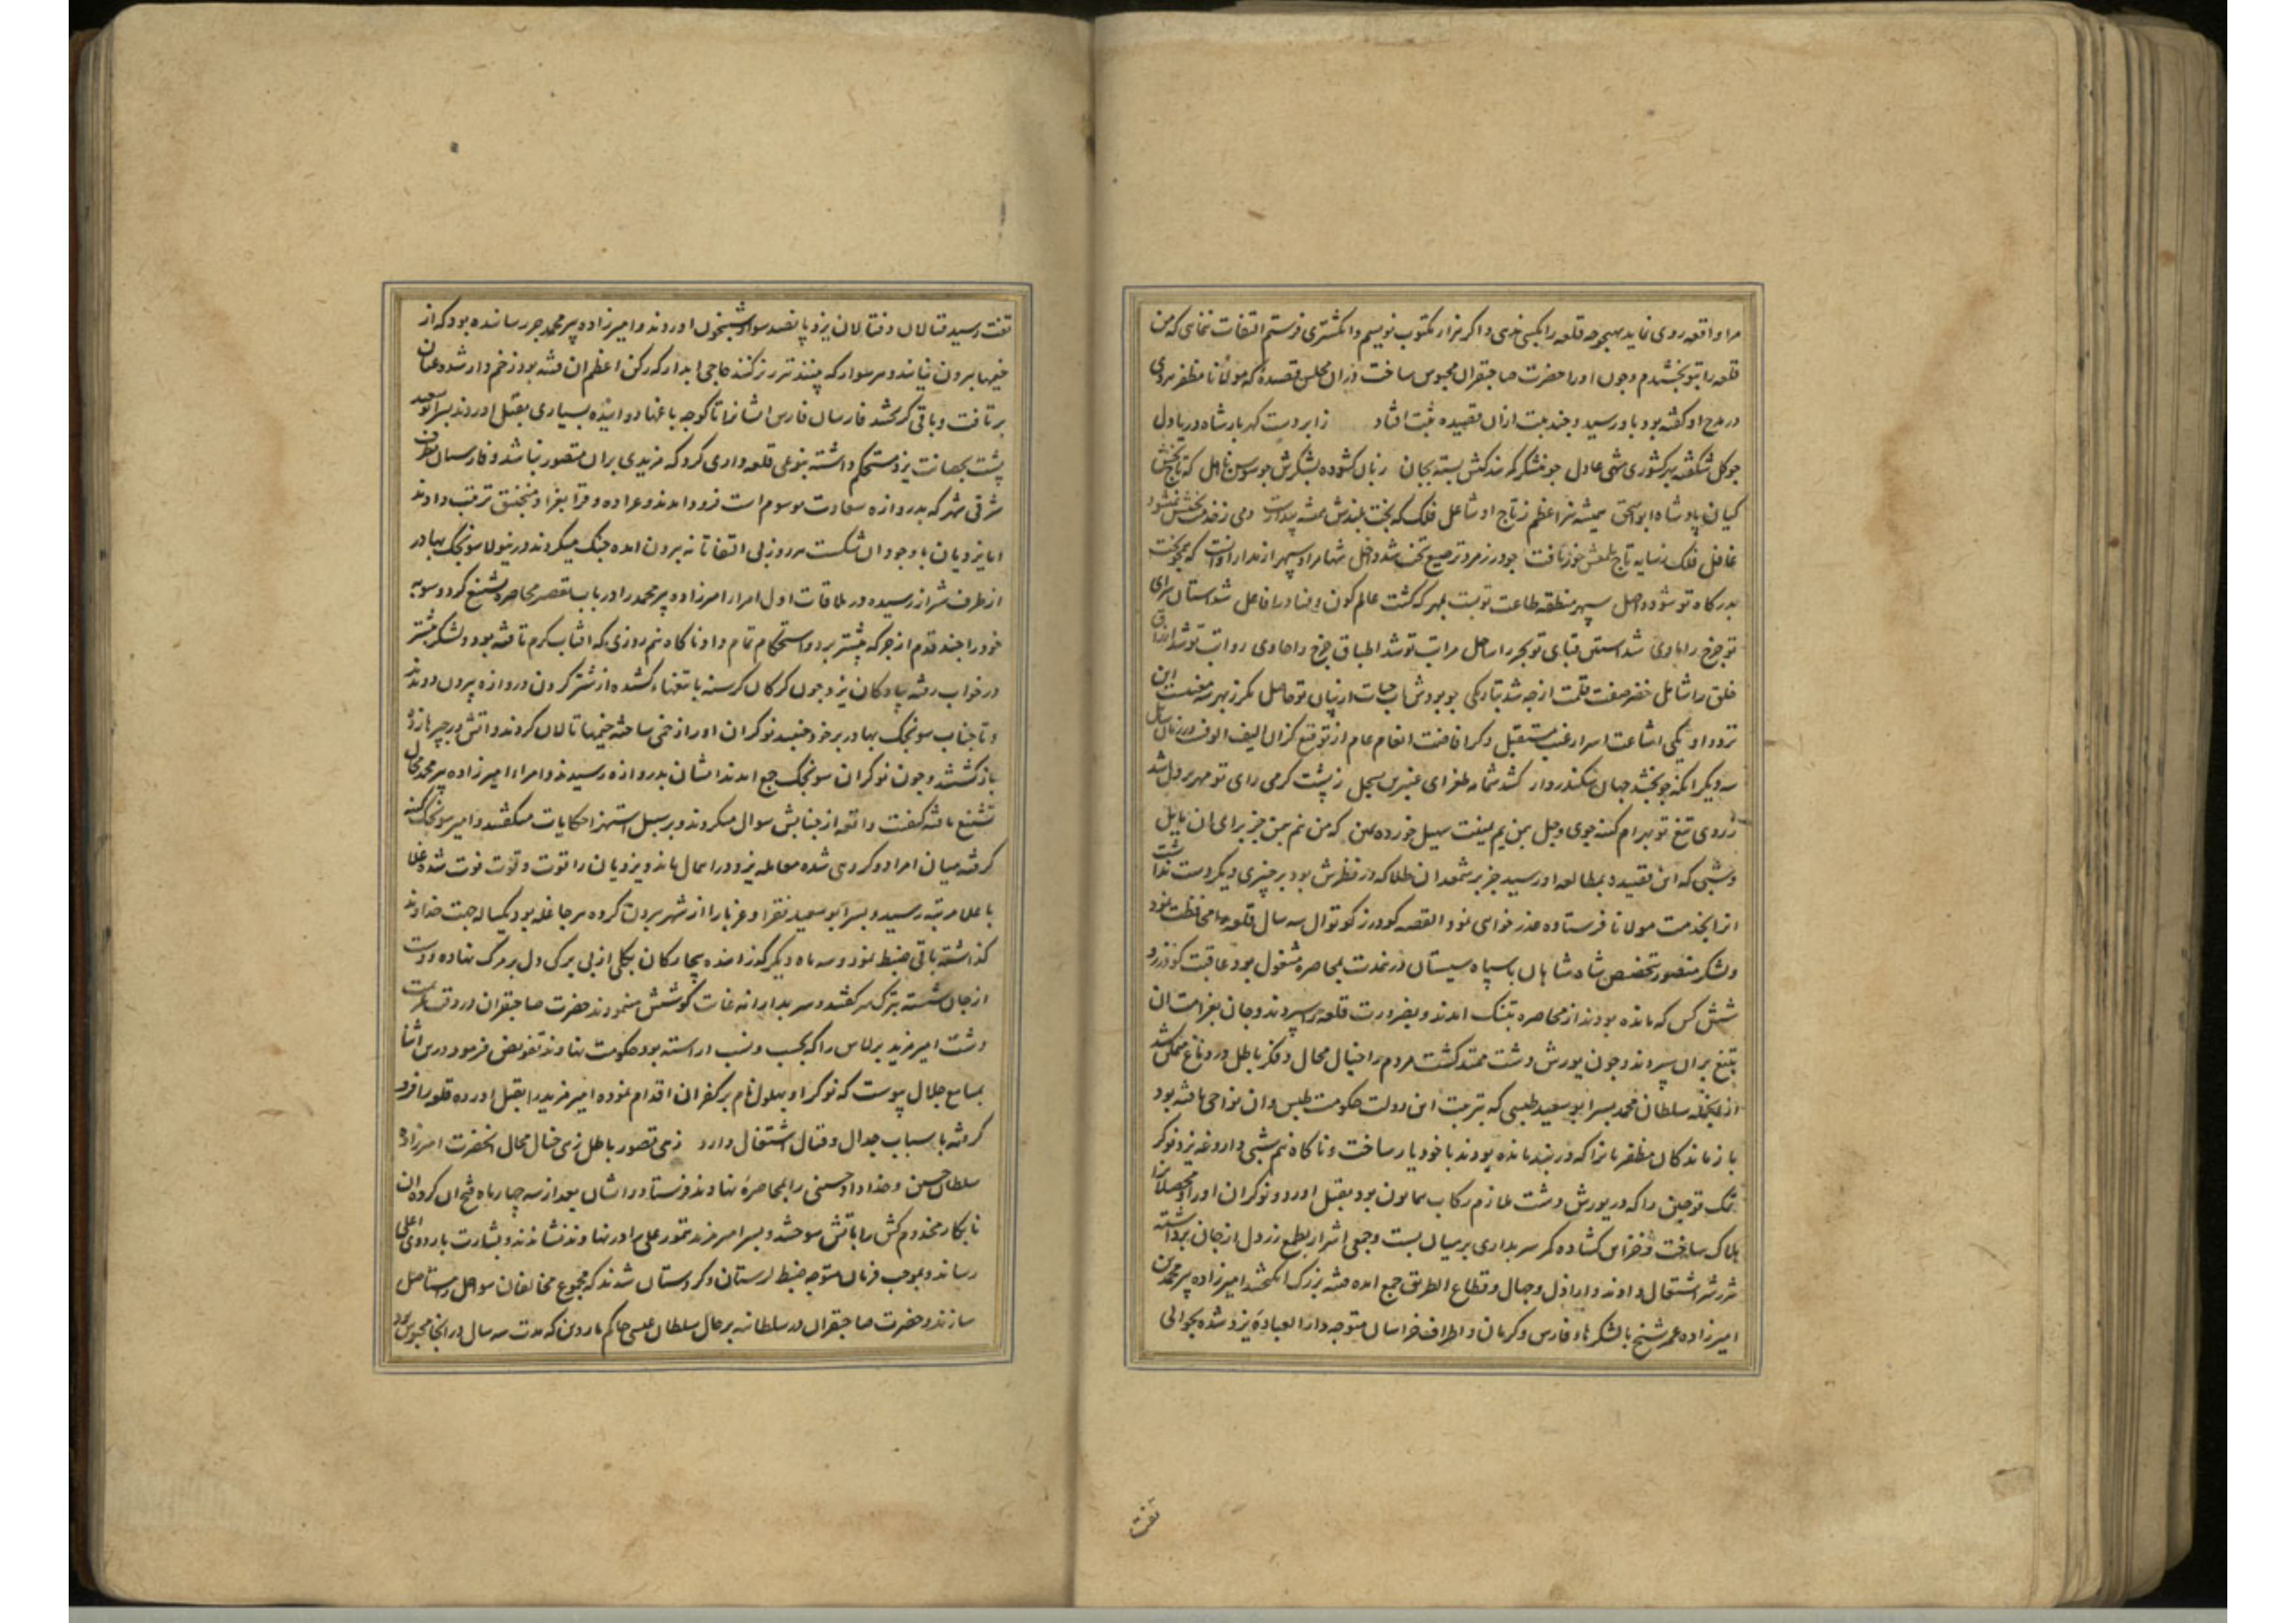 مرا واقعه روی نماید بهیچ وجه قلعه را بکسی ندهی و اگر هزار مکتوب نویسم و انگشتری فرستم التفات ننمایی که من
قلعه را بتو بخشیدم و چون او را حضرت صاحبقران محبوس ساخت در آن مجلس قصیدهٔ که مولانا مظفر هروی
در مدح او گفته بود باو رسید و چند بیت از آن قصیده ثبت افتاد ز ابر دست گهربار شاه دریا دل
چو گل شکفته بهر کشوری شهی عادل بسته بجان زبان گشوده بشکرش چو سوسن
کیان پادشاه ابو اسحق همیشه نیر اعظم ز تاج او شاعل فلک که بخت بلندش همیشه بیدارست دمی ز خدمت
غافل فلک ز سایه تاج خور یافت چو در زمرد ترصیع تخت شد داخل
بدرگاه تو شود واصل سپهر منطقه طاعت تو بست بمهر که گشت عالم کون و فساد را فاعل شد آستان سرای
تو چرخ را شد آستین قبای تو بحر را ساحل مراتب تو شد اطباق چرخ را حاوی رواتب تو شد ارزاق
خلق را شامل خضر صفت قلمت از چه شد بتاریکی چو بودش آب حیات از بنان تو حاصل مگر ز بهر سه معنیست این
تردد او یکی اشاعت اسرار غیب مستقبل دگر افاضت انعام عام از توقیع کزان الیف الوف
سه دیگر آنکه چو بخشد جهان سکندروار کشد شمامه طغرای عنبرین بسجل ز پشت گرمی رای تو مهر
ز روی تیغ تو بهرام کینه جوی وجل
و شبی که این قصیده بمطالعه او رسید جز بر شمعدان طلا که در نظرش بود بر چیزی دیگر دست نداشت
آنرا بخدمت مولانا فرستاده عذر خواهی نمود القصه گودرز کوتوال سه سال قلعه را محافظت نمود
و لشکر منصور بتخصیص شاه شاهان با سپاه سیستان در مدت بمحاصره مشغول بود عاقبت گودرز و
شش کس که مانده بودند از محاصره بتنگ آمدند و بضرورت قلعه را سپردند و جان بغرامت آن
بتیغ بران سپردند و چون یورش دشت ممتد گشت مردم را خیال محال و فکر باطل در دماغ متمکن شد
از آنجمله سلطان محمد پسر ابو سعید طبسی که بتربیت این دولت حکومت طبس و آن نواحی یافته بود
بازماندگان مظفریانرا که در یزد مانده بودند با خود یار ساخت و ناگاه نیم شبی داروغه یزد نوکر
تمک قوچین را که در یورش دشت ملازم رکاب همایون بود بقتل آورد و نوکران او را و محصلانرا
هلاک ساخت و خزاین گشاده کمر سربداری بر میان بست و جمعی اشرار بطمع زر دل از جان برداشته
شر و شور اشتغال دادند و اراذل و جهال و قطاع الطریق جمع آمده فتنه بزرگ انگیختند امیرزاده پیر محمد بن
امیرزاده عمر شیخ با لشکرهاء فارس و کرمان و اطراف خراسان متوجه دار العبادهٔ یزد شده بحوالی
تفت
تفت رسید قتالان و فتالان یزد با پانصد سوار شبیخون آوردند و امیرزاده پیر محمد رسانده بود که از
خیمها بیرون نیایند و هر سوار که بینند تیر ریز کنند حاجی آبدار که رکن اعظم آن فتنه بود زخم دار شده عنان
برتافت و باقی گریختند فارسان فارس ایشانرا تا کوچه باغها دوانیده بسیاری بقتل آوردند پسر ابو سعید
پشت بحصانت یزد مستحکم داشته بنوعی قلعه داری کرد که مزیدی بر آن متصور نباشد و فارسیان بطرف
شرقی شهر که بدروازه سعادت موسوم است فرود آمدند و عراده و قرا بغرا و منجنیق ترتیب دادند
اما یزدیان با وجود آن شکست هر روز بی التفاتانه بیرون آمده جنگ میکردند درینولا سونجک بهادر
از طرف شیراز رسیده در ملاقات اول امراء امیرزاده پیر محمد را در باب تقصیر محاصره تشنیع کرد و سوبه
خود را چند قدم از جرگه پیشتر برد و استحکام تمام داد ناگاه نیم روزی که آفتاب گرم تافته بود و لشکر بیشتر
در خواب رفته پیادگان یزد چون گرگان گرسنه با تیغهاء کشیده از شتر گردن دروازه بیرون دویدند
و تا جناب سونجک بهادر بر خود جنبید نوکران او را زخمی ساخته خیمها تالان کردند و آتش در چپرها زده
بازگشتند و چون نوکران سونجک جمع آمدند ایشان بدروازه رسیدند و امراء امیرزاده پیر محمد مجال
تشنیع یافته کیفیت واقعه از جنابش سوال میکردند و بر سبیل استهزا حکایات میگفتند و امیر سونجک کینه
گرفته میان امرا دو گروهی شده معامله یزد در اهمال ماند و یزدیان را قوت و قوت فوت شده غلا
باعلا مرتبه رسید و پسر ابو سعید فقرا و غربا را از شهر بیرون کرده هر جا غله بود یکساله جهت خداوند
گذاشته باقی ضبط نمود و سه ماه دیگر گذرانیده بیچارگان بکلی از بی برگی دل بر مرگ نهاده و دست
از جان شسته بترک سر گفتند و سربدارانه غایت کوشش مینمودند حضرت صاحبقران در وقت
دشت امیر مزید برلاس را که بحسب و نسب آراسته بود حکومت نهاوند تفویض فرمود درین اثنا
بمسامع جلال پیوست که نوکر او بهلول نام بر کفران اقدام نموده امیر مزید را بقتل آورده قلعه را فرو
گرفته باسباب جدال و قتال اشتغال دارد زهی تصور باطل زهی خیال محال آنحضرت امیرزاده
سلطان حسین و خداداد حسینی را بمحاصرهٔ نهاوند فرستاد و ایشان بعد از سه چهار ماه فتح آن کرده آن
نابکار مخدوم کش را بآتش سوختند و پسر امیر مزید تمور علی را در نهاوند نشاندند و بشارت باردوی اعلی
رساند و بموجب فرمان متوجه ضبط لرستان و کردستان شدند که مجموع مخالفان سواحل را مستاصل
سازند و حضرت صاحبقران در سلطانیه بر حال سلطان عیسی حاکم ماردین که مدت سه سال در آنجا محبوس بود